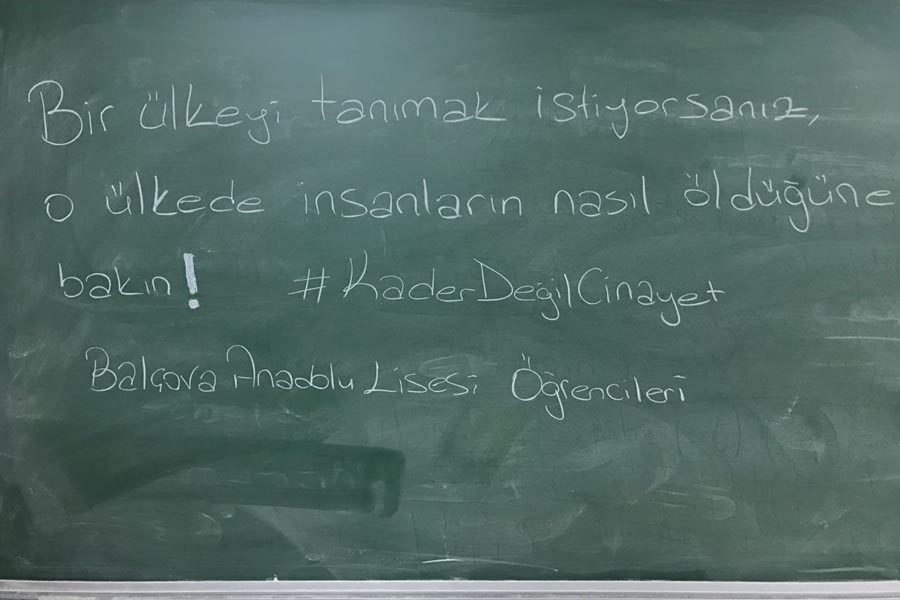 Bir ülkeyi tanımak istiyorsanız,
o ülkede insanların nasıl öldüğüne
bakın! #KaderDeğilCinayet
Balçova Anadolu Lisesi Öğrencileri